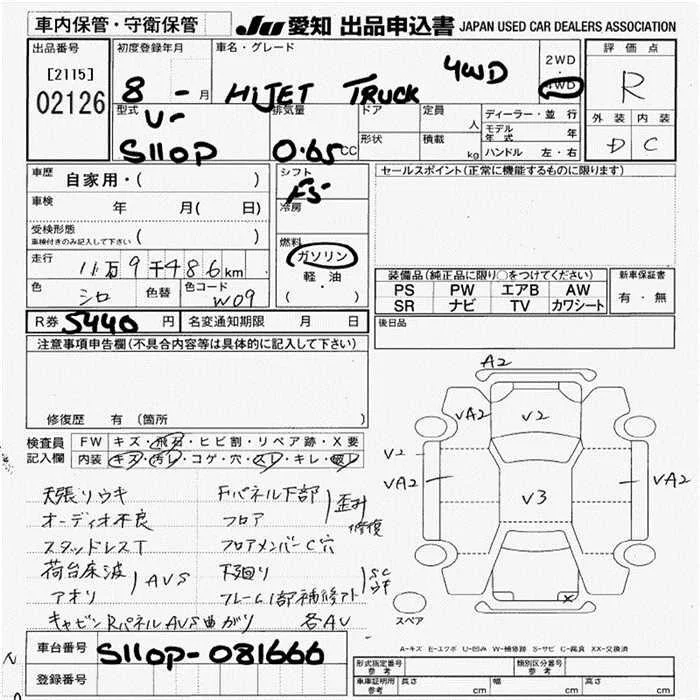 車内保管・守衛保管
JU 愛知 出品申込書 JAPAN USED CAR DEALERS ASSOCIATION
出品番号
[2115]
02126
初度登録年月
8 - 月
車名・グレード
HIJET TRUCK 4WD
2WD
4WD
評価点
R
外装 内装
D C
型式
V-
S110P
排気量
0.65 CC
ドア
形状
定員
人
積載
kg
ディーラー・並行
モデル年式 年
ハンドル 左・右
車歴 自家用・( )
車検 年 月( 日)
受検形態
車検付きのみ記入して下さい ( )
走行 11万9千486km
色 シロ 色替 色コード W09
シフト
F5
冷房
燃料
ガソリン
軽・油
( )
セールスポイント(正常に機能するものに限ります)
装備品(純正品に限り○をつけてください)
PS PW エアB AW
SR ナビ TV カワシート
新車保証書
有・無
R券 5440円 名変通知期限 月 日
後日品
注意事項申告欄(不具合内容等は具体的に記入して下さい)
修復歴 有 (箇所 )
検査員記入欄
FW キズ・飛石・ヒビ割・リペア跡・X要
内装 キズ・汚レ・コゲ・穴・スレ・キレ・破レ
天張リウキ
オーディオ不良
スタッドレスT
荷台床波
アオリ
AVS
キャビンRパネルAVS曲ガリ
Fパネル下部
フロア
歪ミ
修復
フロアメンバーC穴
下廻リ
フレーム1部補修アト
SC
各AV
A2
VA2
V2
VA2
V2
VA2
V3
VA2
X
スペア
A-キズ E-エクボ U-凹み W-補修跡 S-サビ C-腐食 XX-交換済
車台番号 S110P-081666
登録番号
型式指定番号
参考
類別区分番号
参考
車庫証明用
参考
長さ cm 幅 cm 高さ cm